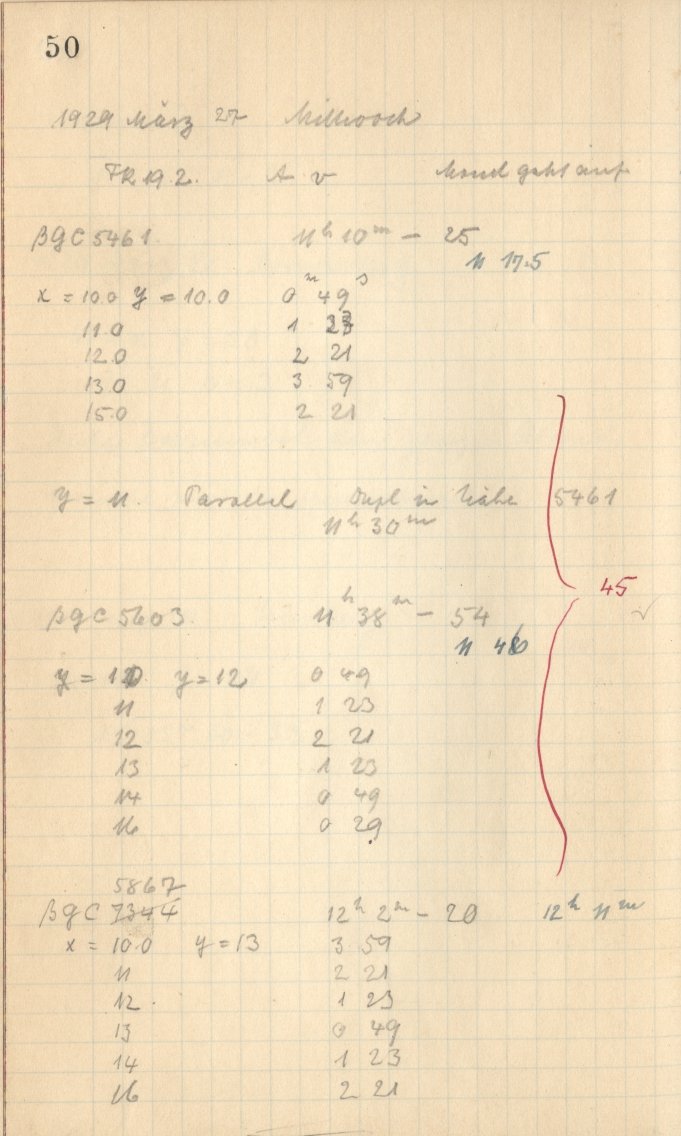 50
1929 März 27 Mittwoch
FR 19.2. A v Mond geht auf
βGC 5461. 11h 10m – 25
11 17.5
x = 10.0 y = 10.0 0m 49s
11.0 1 23
12.0 2 21
13.0 3 59
15.0 2 21
y = 11. Parallel Dupl in Nähe 5461
11h 30m
45
βGC 5603. 11h 38m – 54
11 46
y = 10. y = 12 0 49
11 1 23
12 2 21
13 1 23
14 0 49
16 0 29
5867
βGC 7344 12h 2m – 20 12h 11m
x = 10.0 y = 13 3 59
11 2 21
12. 1 23
13 0 49
14 1 23
16 2 21